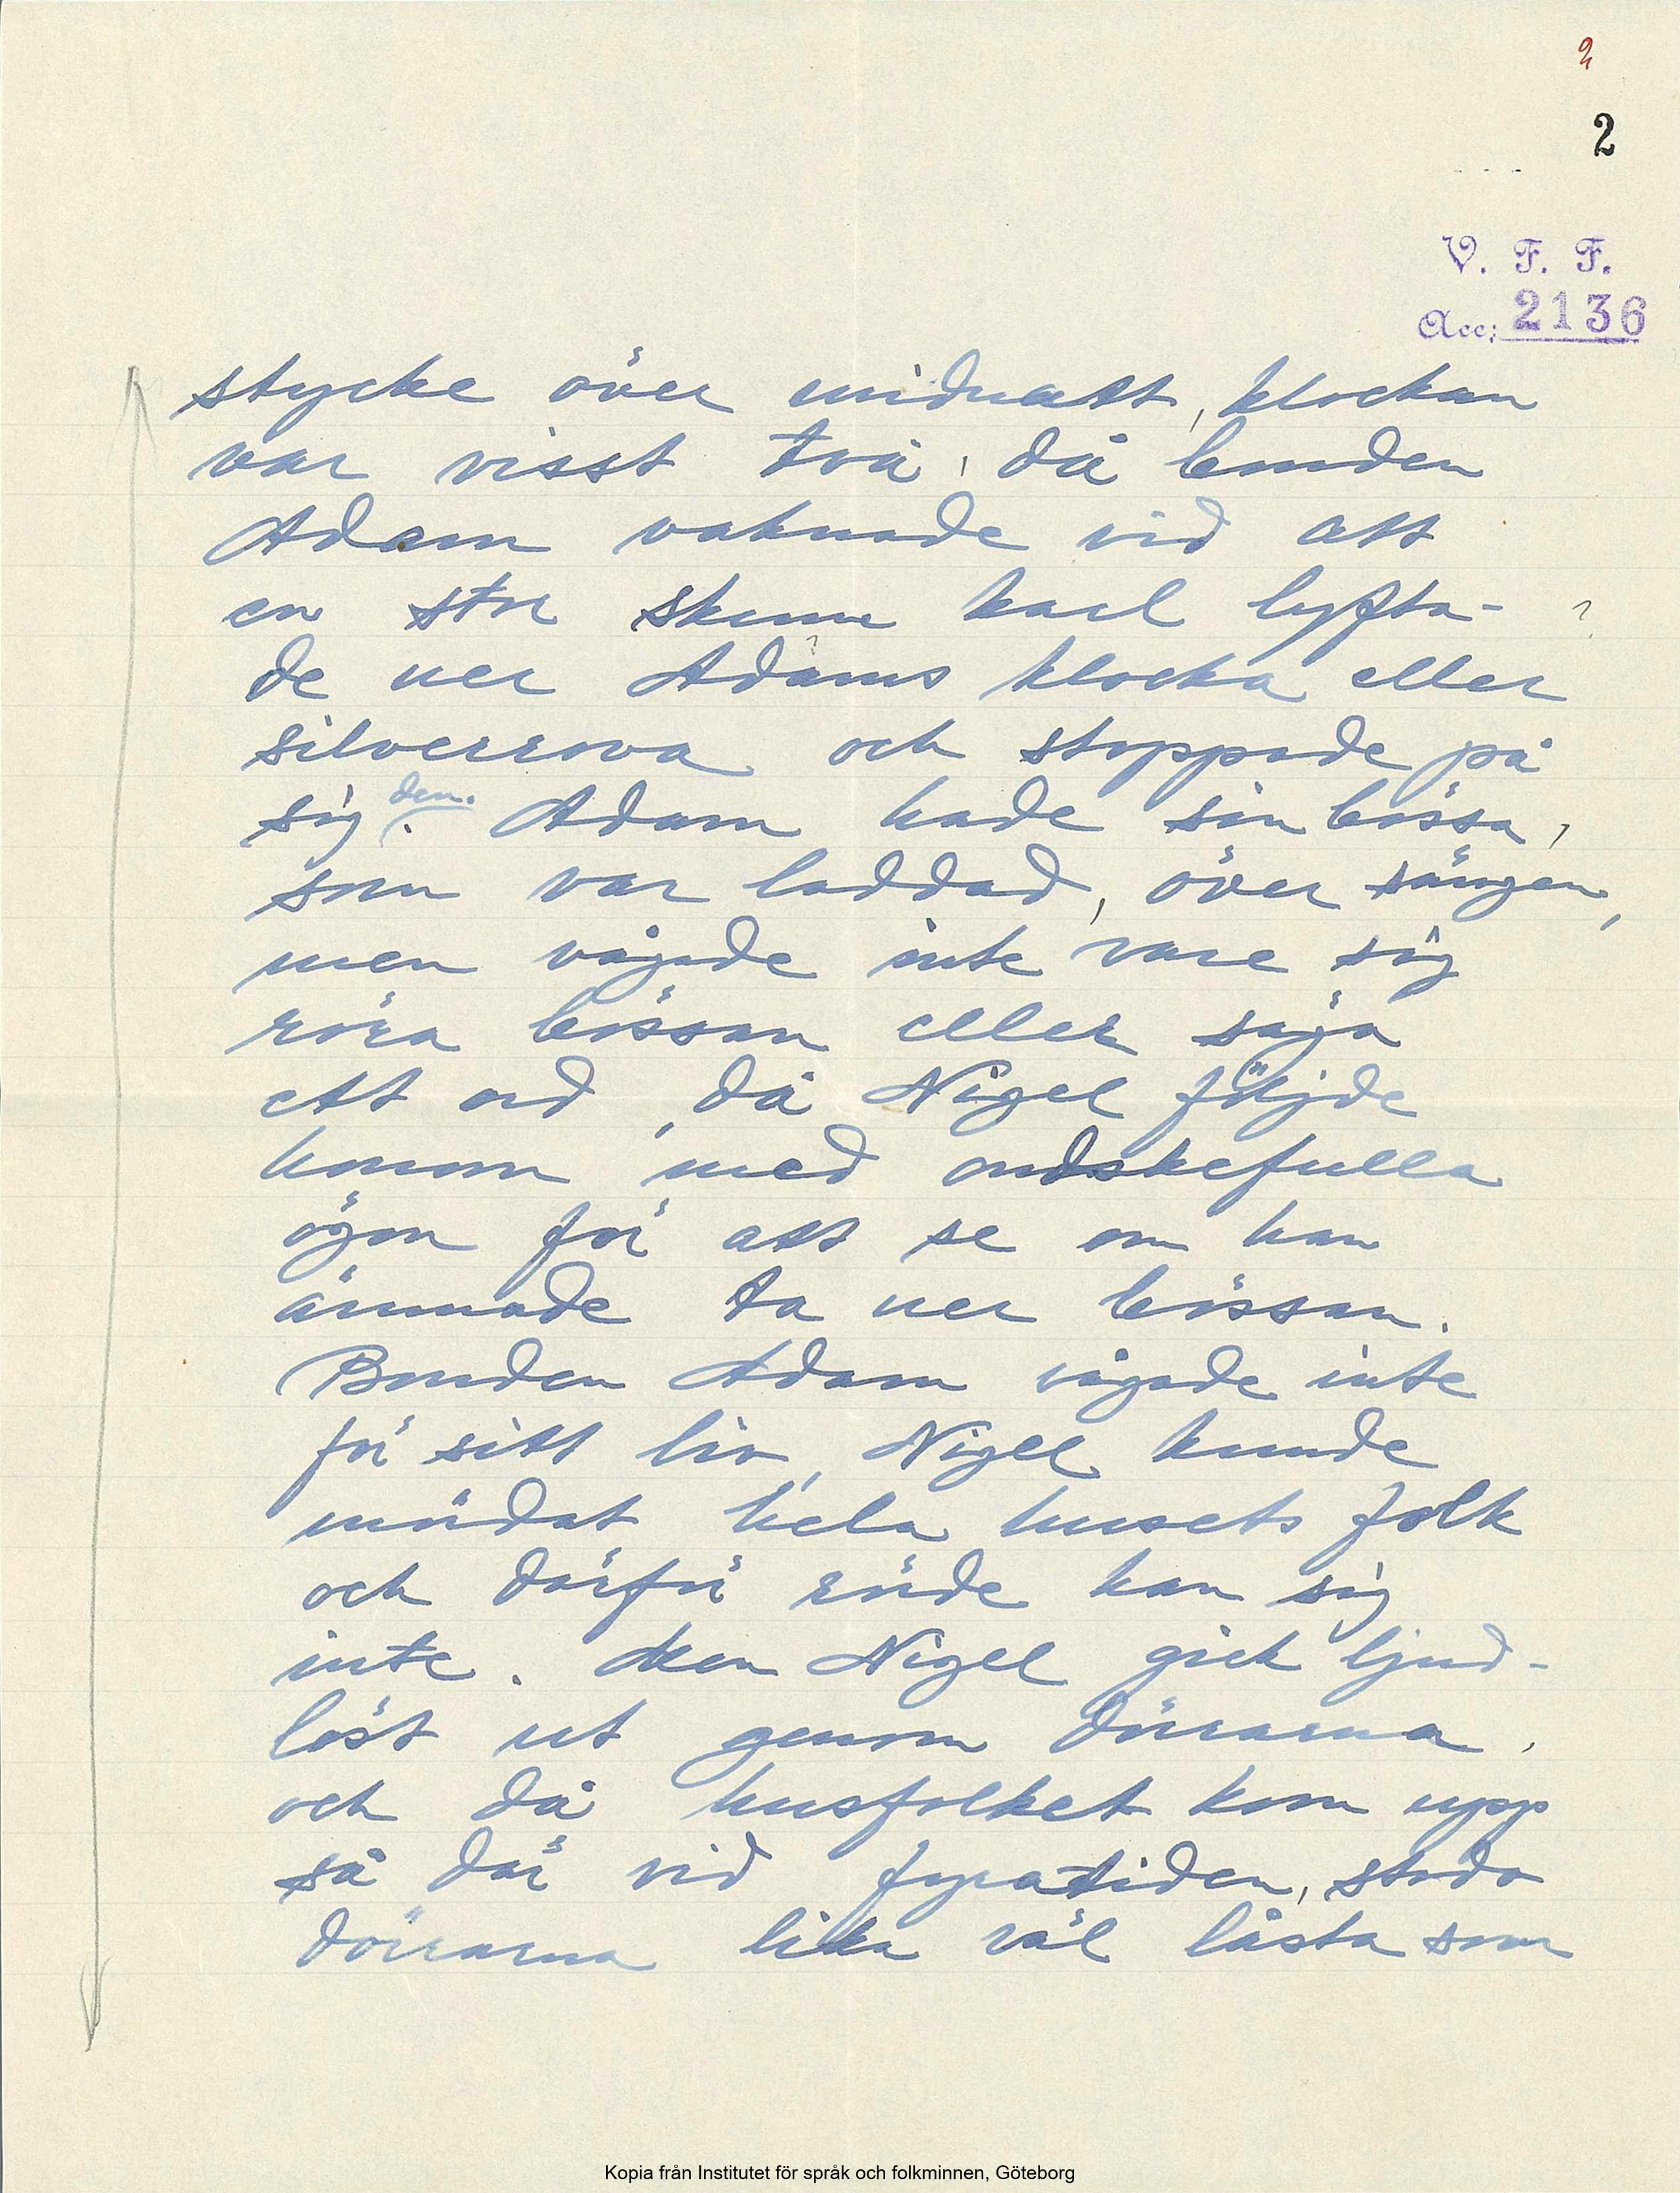 2
2
V. F. F.
Acc: 2136
stycke över midnatt, klockan
var visst två, då bonden
Adam vaknade vid att
en stor skum karl lyfta-
de ner Adams klocka eller
silverrova och stoppade på
sig den. Adam hade sin bössa,
som var laddad, över sängen,
men vågade inte vare sig
röra bössan eller säja
ett ord, då Nigel följde
honom med ondskefulla
ögon för att se om han
ämnade ta ner bössan.
Bonden Adam vågade inte
för sitt liv, Nigel kunde
mördat hela husets folk
och därför rörde han sig
inte. Men Nigel gick ljud-
löst ut genom dörrarna,
och då husfolket kom upp
så där vid fyratiden, stodo
dörrarna lika väl låsta som
Kopia från Institutet för språk och folkminnen, Göteborg